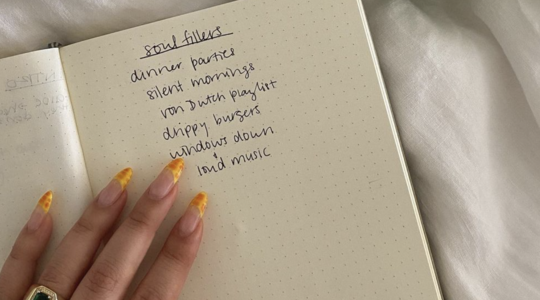 soul fillers
dinner parties
silent mornings
von Dutch playlist
drippy burgers
windows down
& loud music